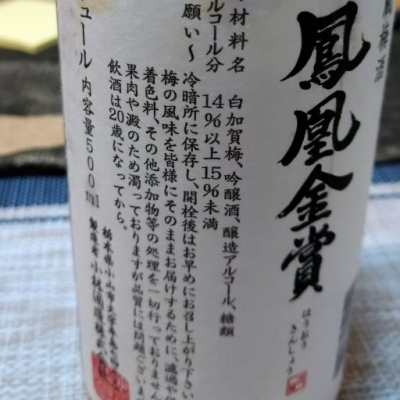 鳳凰金賞
ほうおう
きんしょう
材料名 白加賀梅、吟醸酒、醸造アルコール、糖類
ルコール分 14%以上15%未満
願い〜 冷暗所に保存し、開栓後はお早めにお召し上がり下さい
梅の風味を皆様にそのままお届けするために、濾過や
着色料、その他添加物等の処理を一切行っておりません
果肉や澱のため濁っておりますが品質には問題ございま
飲酒は20歳になってから。
ュール 内容量500ml
栃木県小山市大字卒島
製造者 小林酒造株式会社